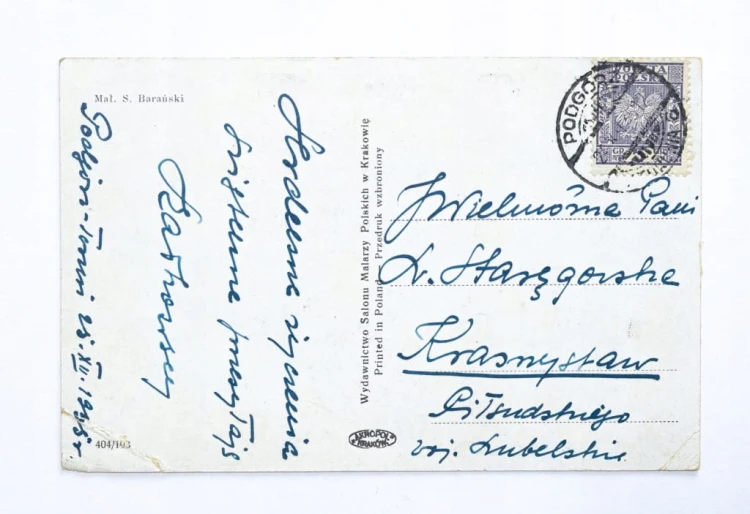 Mal. S. Barański
Podgórz-Toruń 23.XII.1935 r.
Serdeczne życzenia
świąteczne przesyłają
404/103
Wydawnictwo Salonu Malarzy Polskich w Krakowie
Printed in Poland — Przedruk wzbroniony
"AKROPOL"
KRAKÓW
POCZTA
POLSKA
GR
PODGÓRZ
JWielmożna Pani
Krasnystaw
Piłsudskiego
woj. Lubelskie